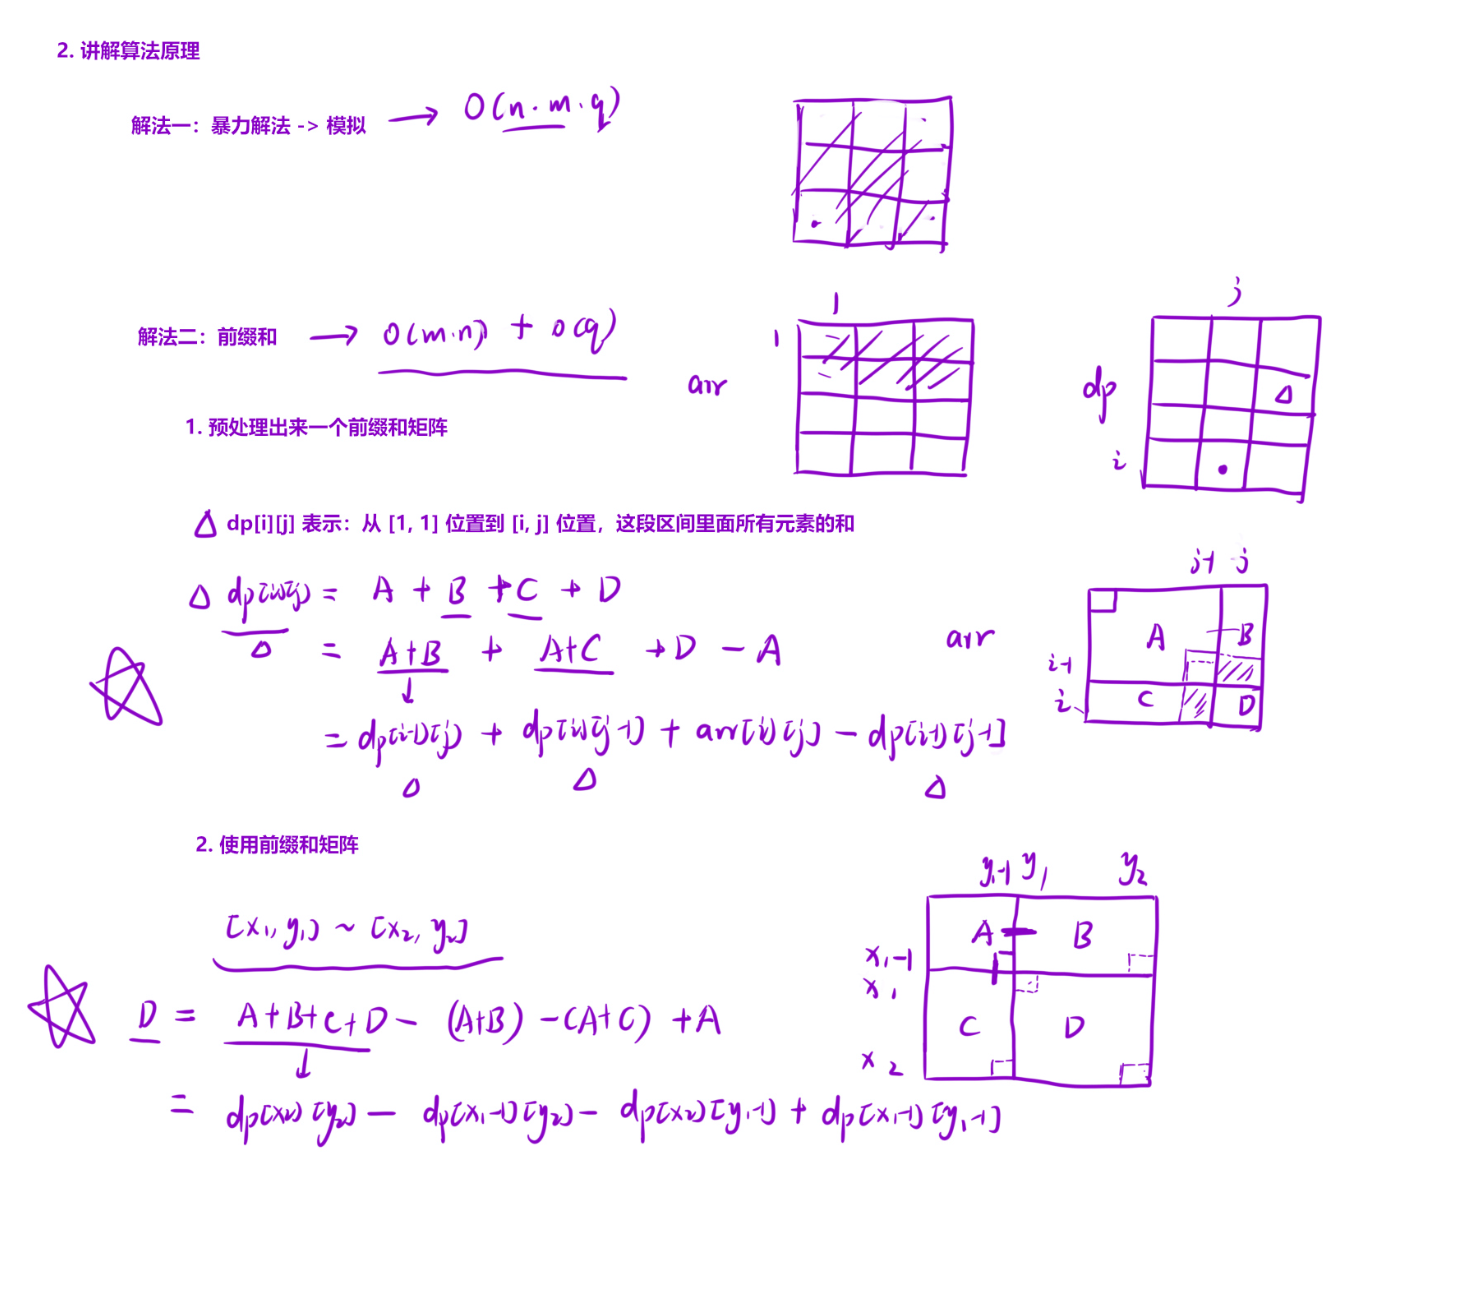 2. 讲解算法原理
解法一：暴力解法 -> 模拟 → O(n·m·q)
解法二：前缀和 → O(m·n) + O(q)
1
1
arr
j
dp
i
1. 预处理出来一个前缀和矩阵
△ dp[i][j] 表示：从 [1, 1] 位置到 [i, j] 位置，这段区间里面所有元素的和
△ dp[i][j] = A + B + C + D
= A+B + A+C + D - A
= dp[i-1][j] + dp[i][j-1] + arr[i][j] - dp[i-1][j-1]
arr
j-1 j
A B
i-1
i C D
2. 使用前缀和矩阵
[x1, y1] ~ [x2, y2]
D = A+B+C+D - (A+B) - (A+C) + A
= dp[x2][y2] - dp[x1-1][y2] - dp[x2][y1-1] + dp[x1-1][y1-1]
y1-1 y1 y2
A B
x1-1
x1
C D
x2